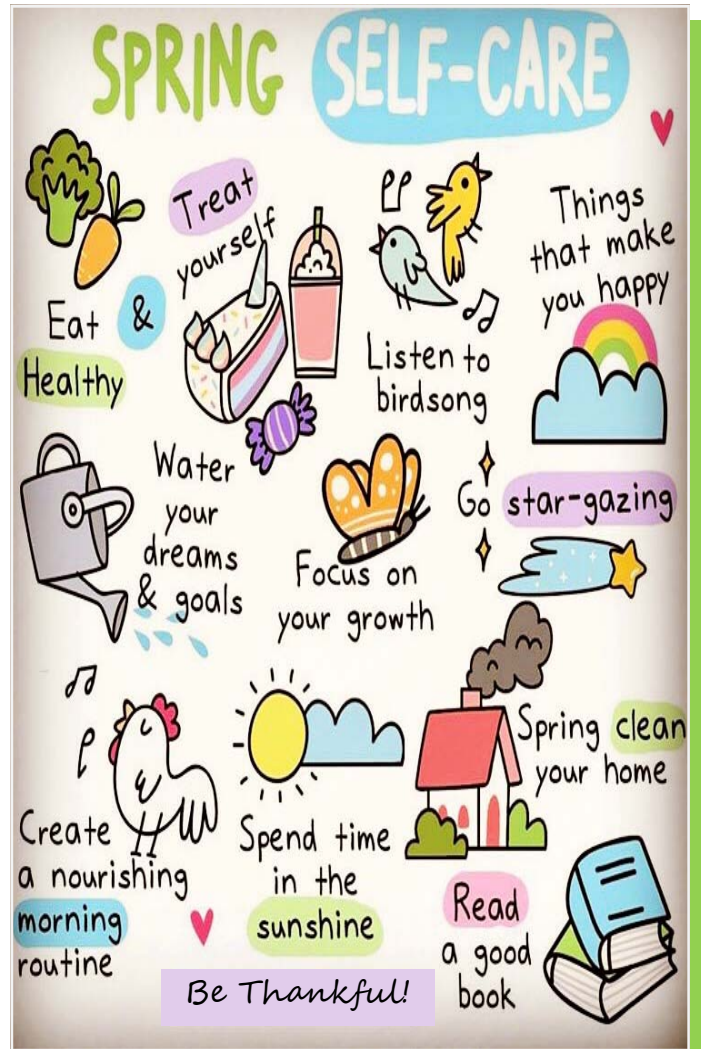 SPRING SELF-CARE
Eat
Healthy
&
Treat
yourself
Listen to
birdsong
Things
that make
you happy
Water
your
dreams
& goals
Focus on
your growth
Go star-gazing
Create
a nourishing
morning
routine
Spend time
in the
sunshine
Spring clean
your home
Read
a good
book
Be Thankful!